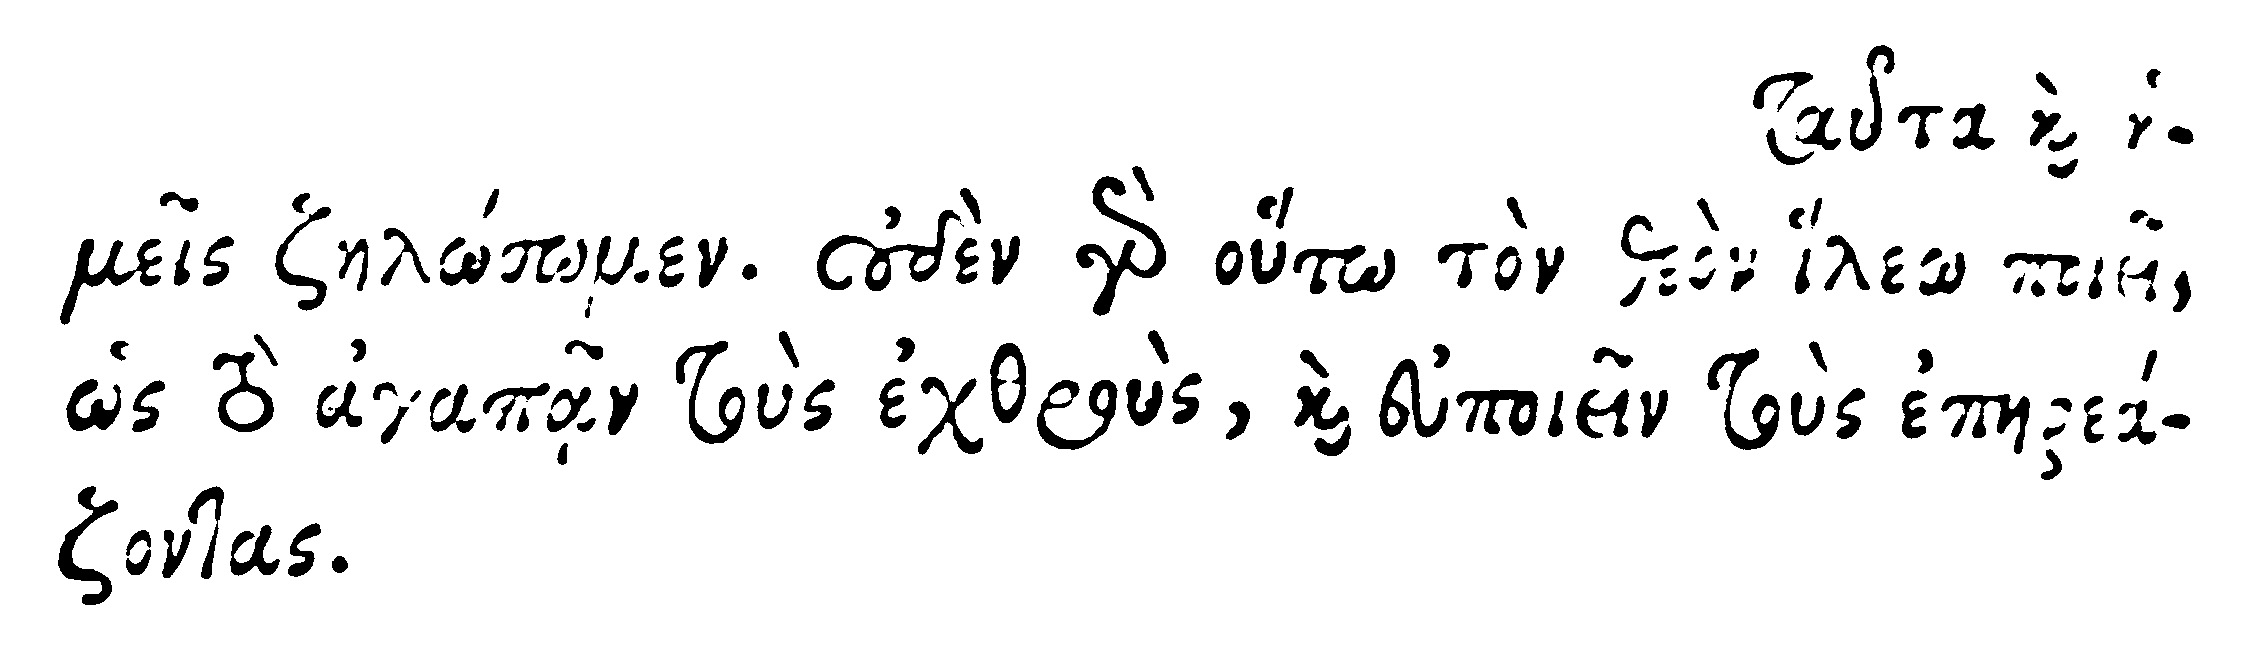 ταῦτα καὶ ἡ-
μεῖς ζηλώσωμεν. οὐδὲν γὰρ οὕτω τὸν θεὸν ἵλεω ποιεῖ,
ὡς τὸ ἀγαπᾷν τοὺς ἐχθροὺς, καὶ εὐποιεῖν τοὺς ἐπηρεά-
ζοντας.